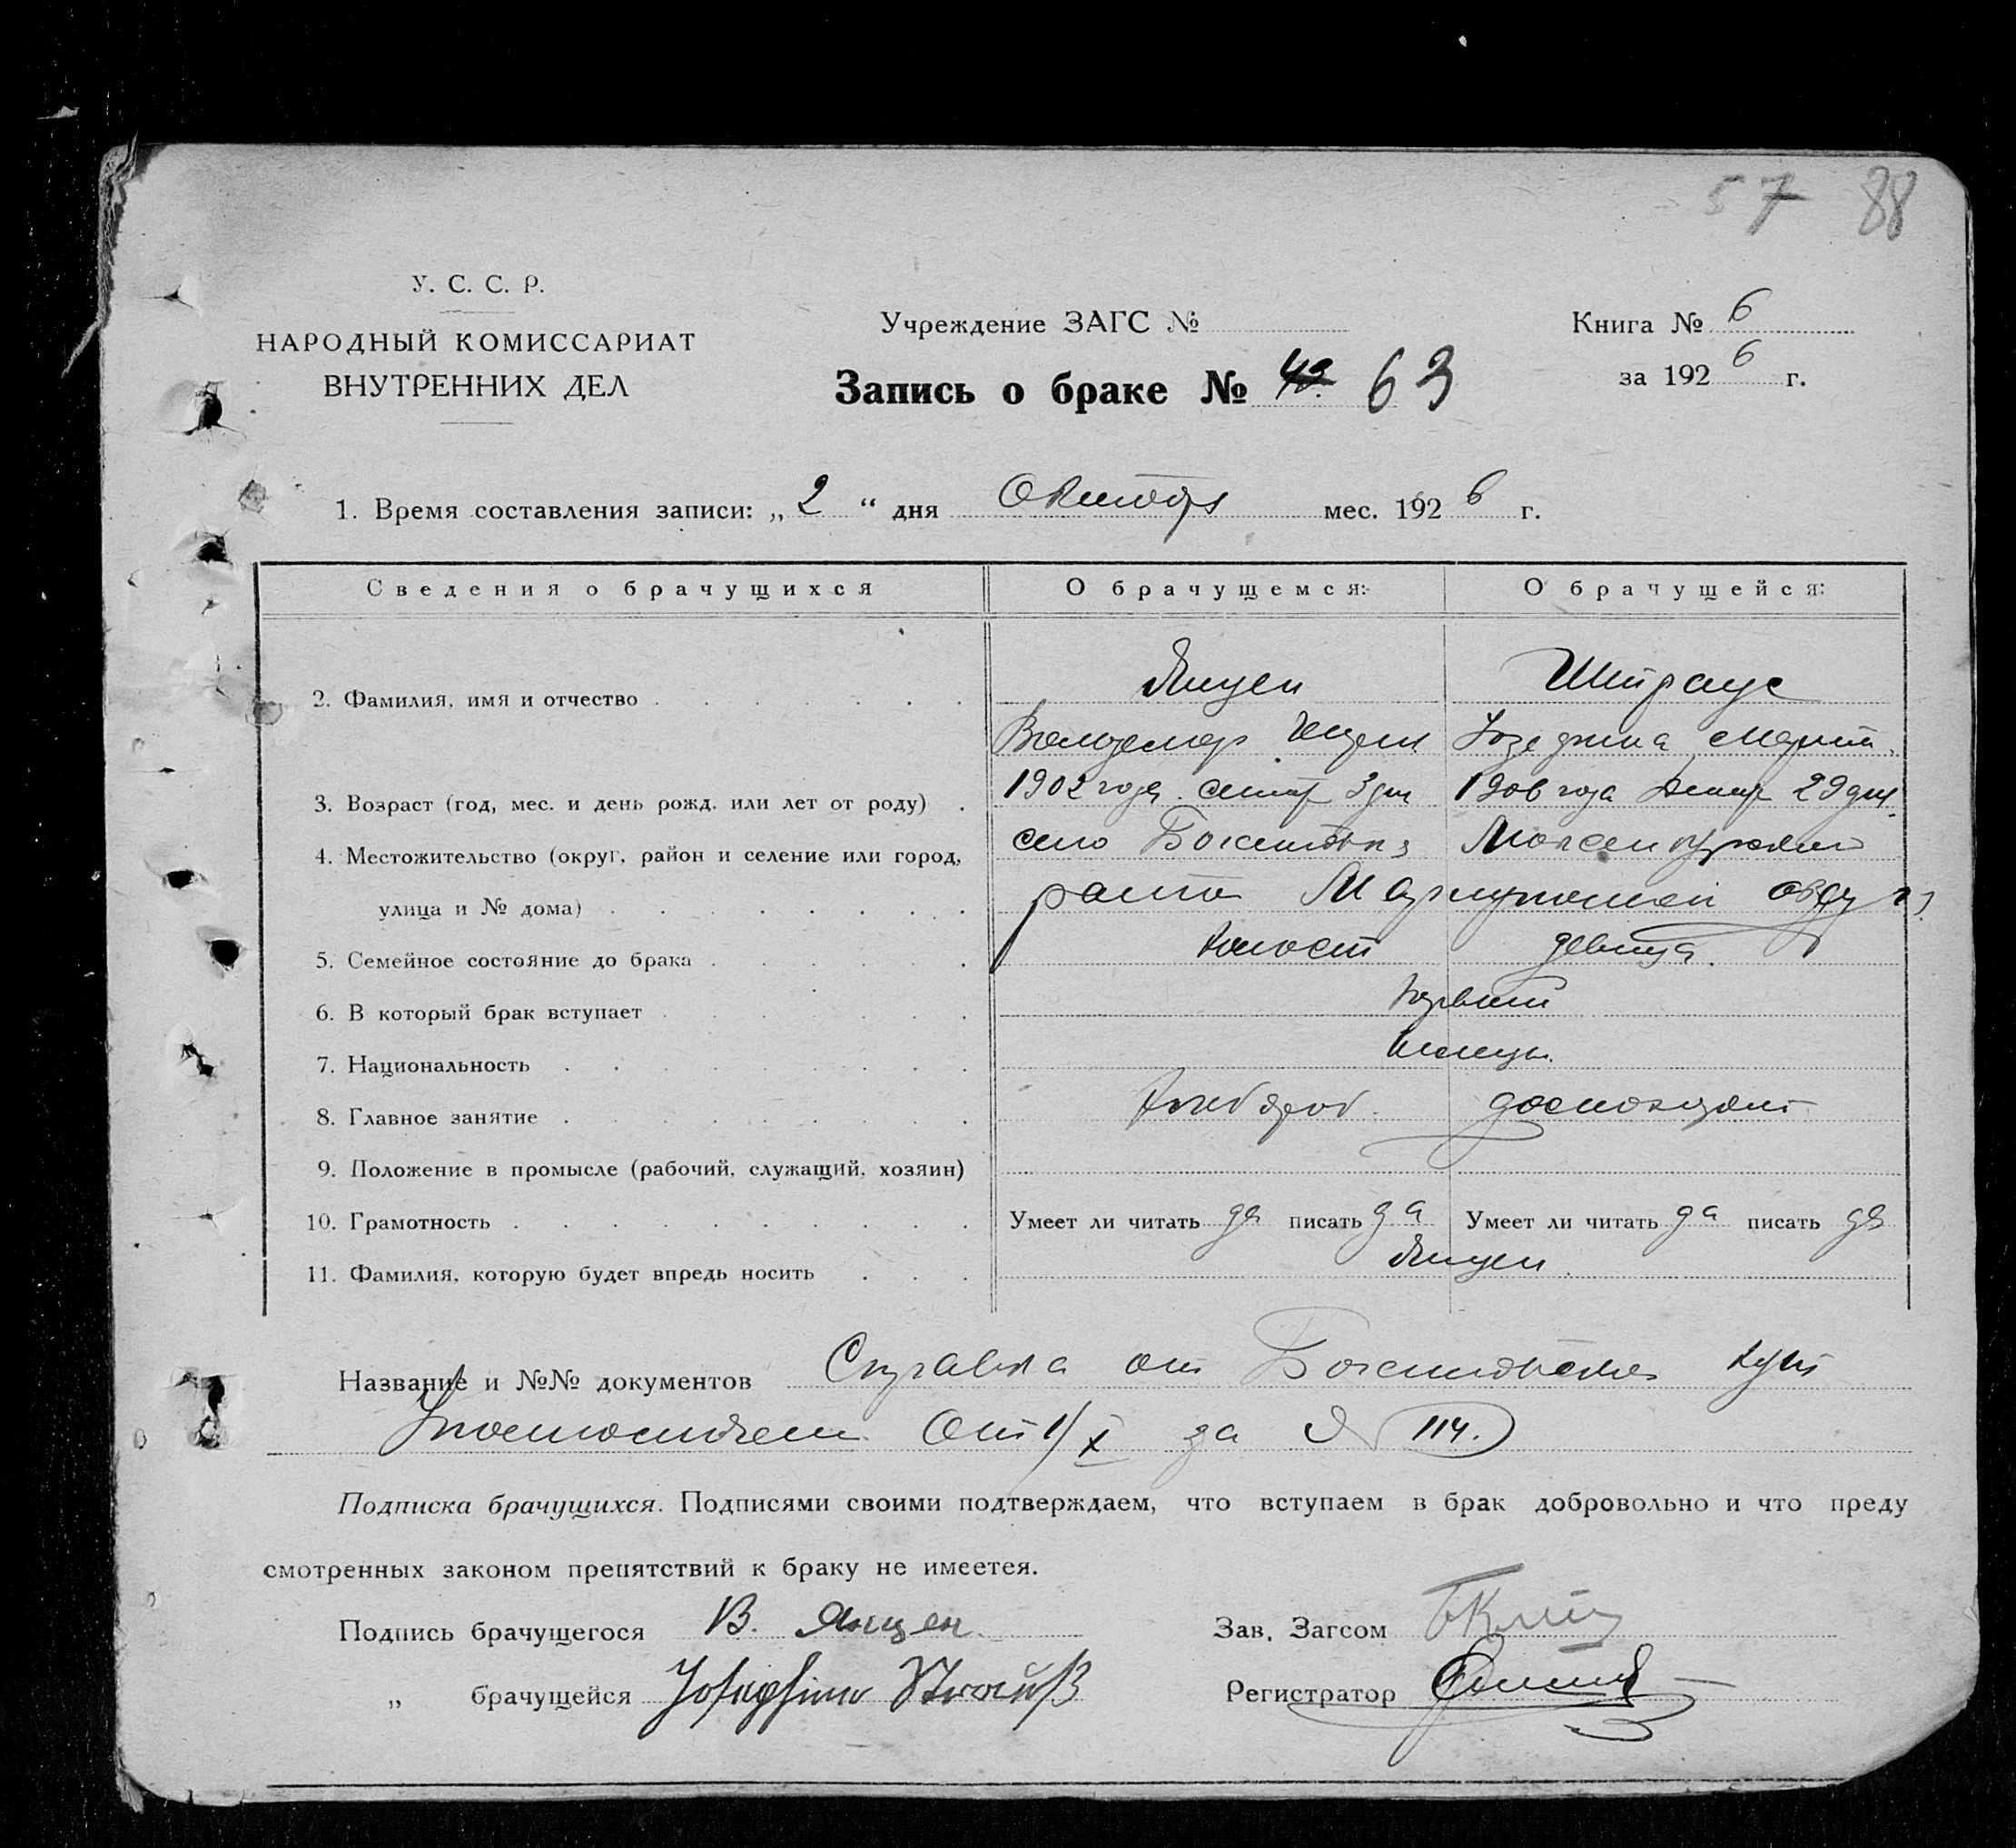 57 88
У. С. С. Р.
НАРОДНЫЙ КОМИССАРИАТ
ВНУТРЕННИХ ДЕЛ
Учреждение ЗАГС №
Запись о браке № 63
Книга № 6
за 1926 г.
1. Время составления записи: „2“ дня Октябр мес. 1926 г.
Сведения о брачущихся О брачущемся: О брачущейся:
2. Фамилия, имя и отчество Янцен Штраус
Вольдемар Жозефина Март.
3. Возраст (год, мес. и день рожд. или лет от роду) 1902 года сент 3 дня 1906 года Декаб 29 дня
4. Местожительство (округ, район и селение или город, село
улица и № дома) Мариупольской округ
5. Семейное состояние до брака холост девица.
6. В который брак вступает первый
7. Национальность Немцы.
8. Главное занятие хлебороб. домохоз
9. Положение в промысле (рабочий, служащий, хозяин)
10. Грамотность Умеет ли читать да писать да Умеет ли читать да писать да
11. Фамилия, которую будет впредь носить Янцен.
Название и №№ документов Справка от
от 1/X за № 114.
Подписка брачущихся. Подписями своими подтверждаем, что вступаем в брак добровольно и что преду
смотренных законом препятствий к браку не имеетея.
Подпись брачущегося В. Янцен.
Зав. Загсом
„ брачущейся Josephine Strauß
Регистратор